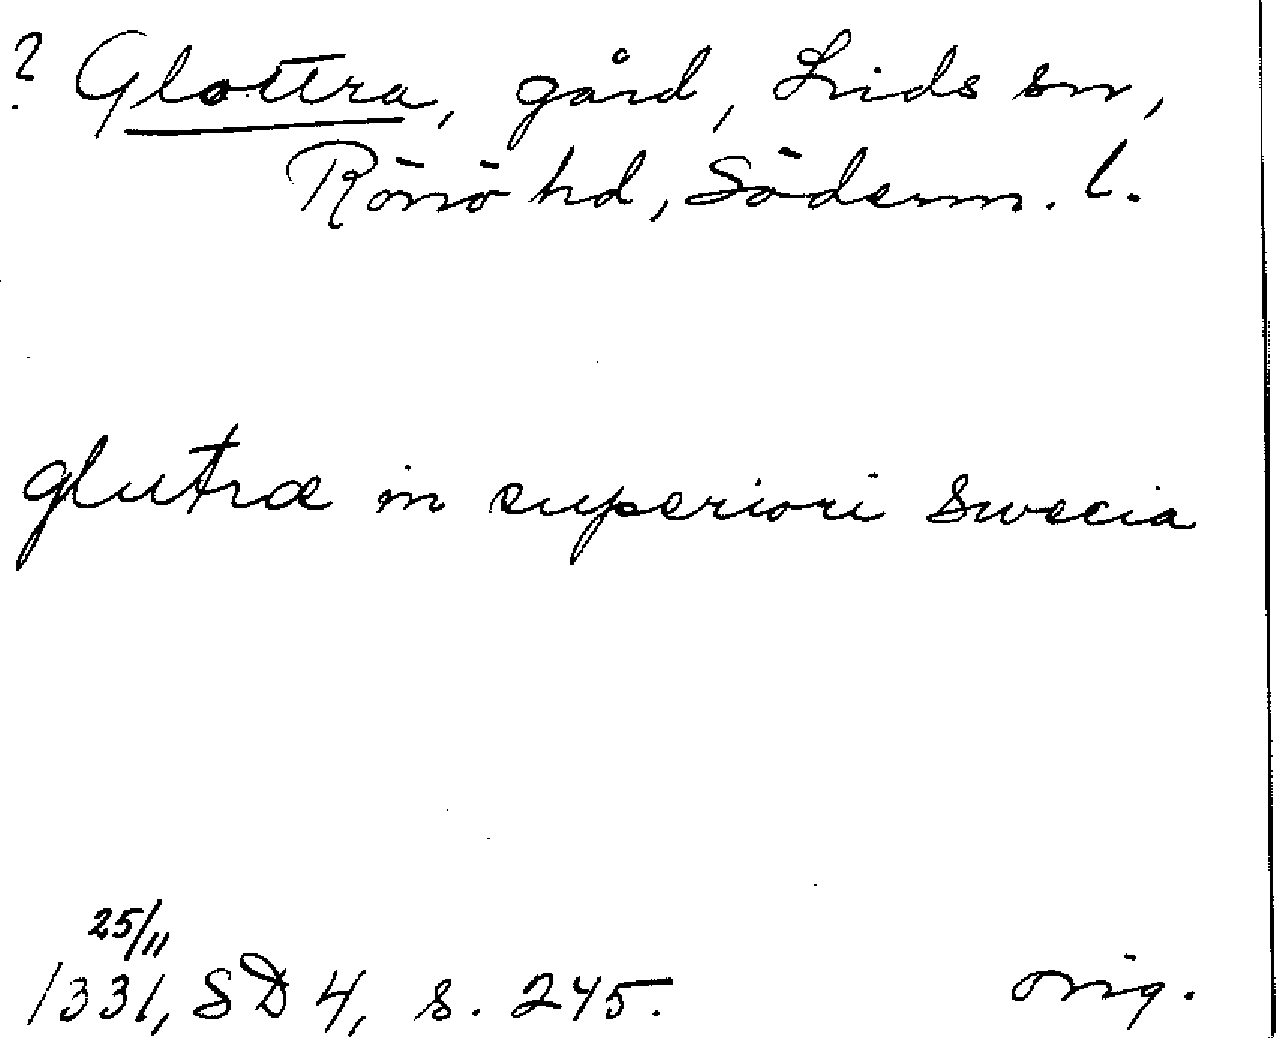 ? Glottra, gård, Lids sn,
Rönö hd, Söderm. l.
glutræ in superiori swecia
25/11
1331, SD 4, s. 245.
orig.